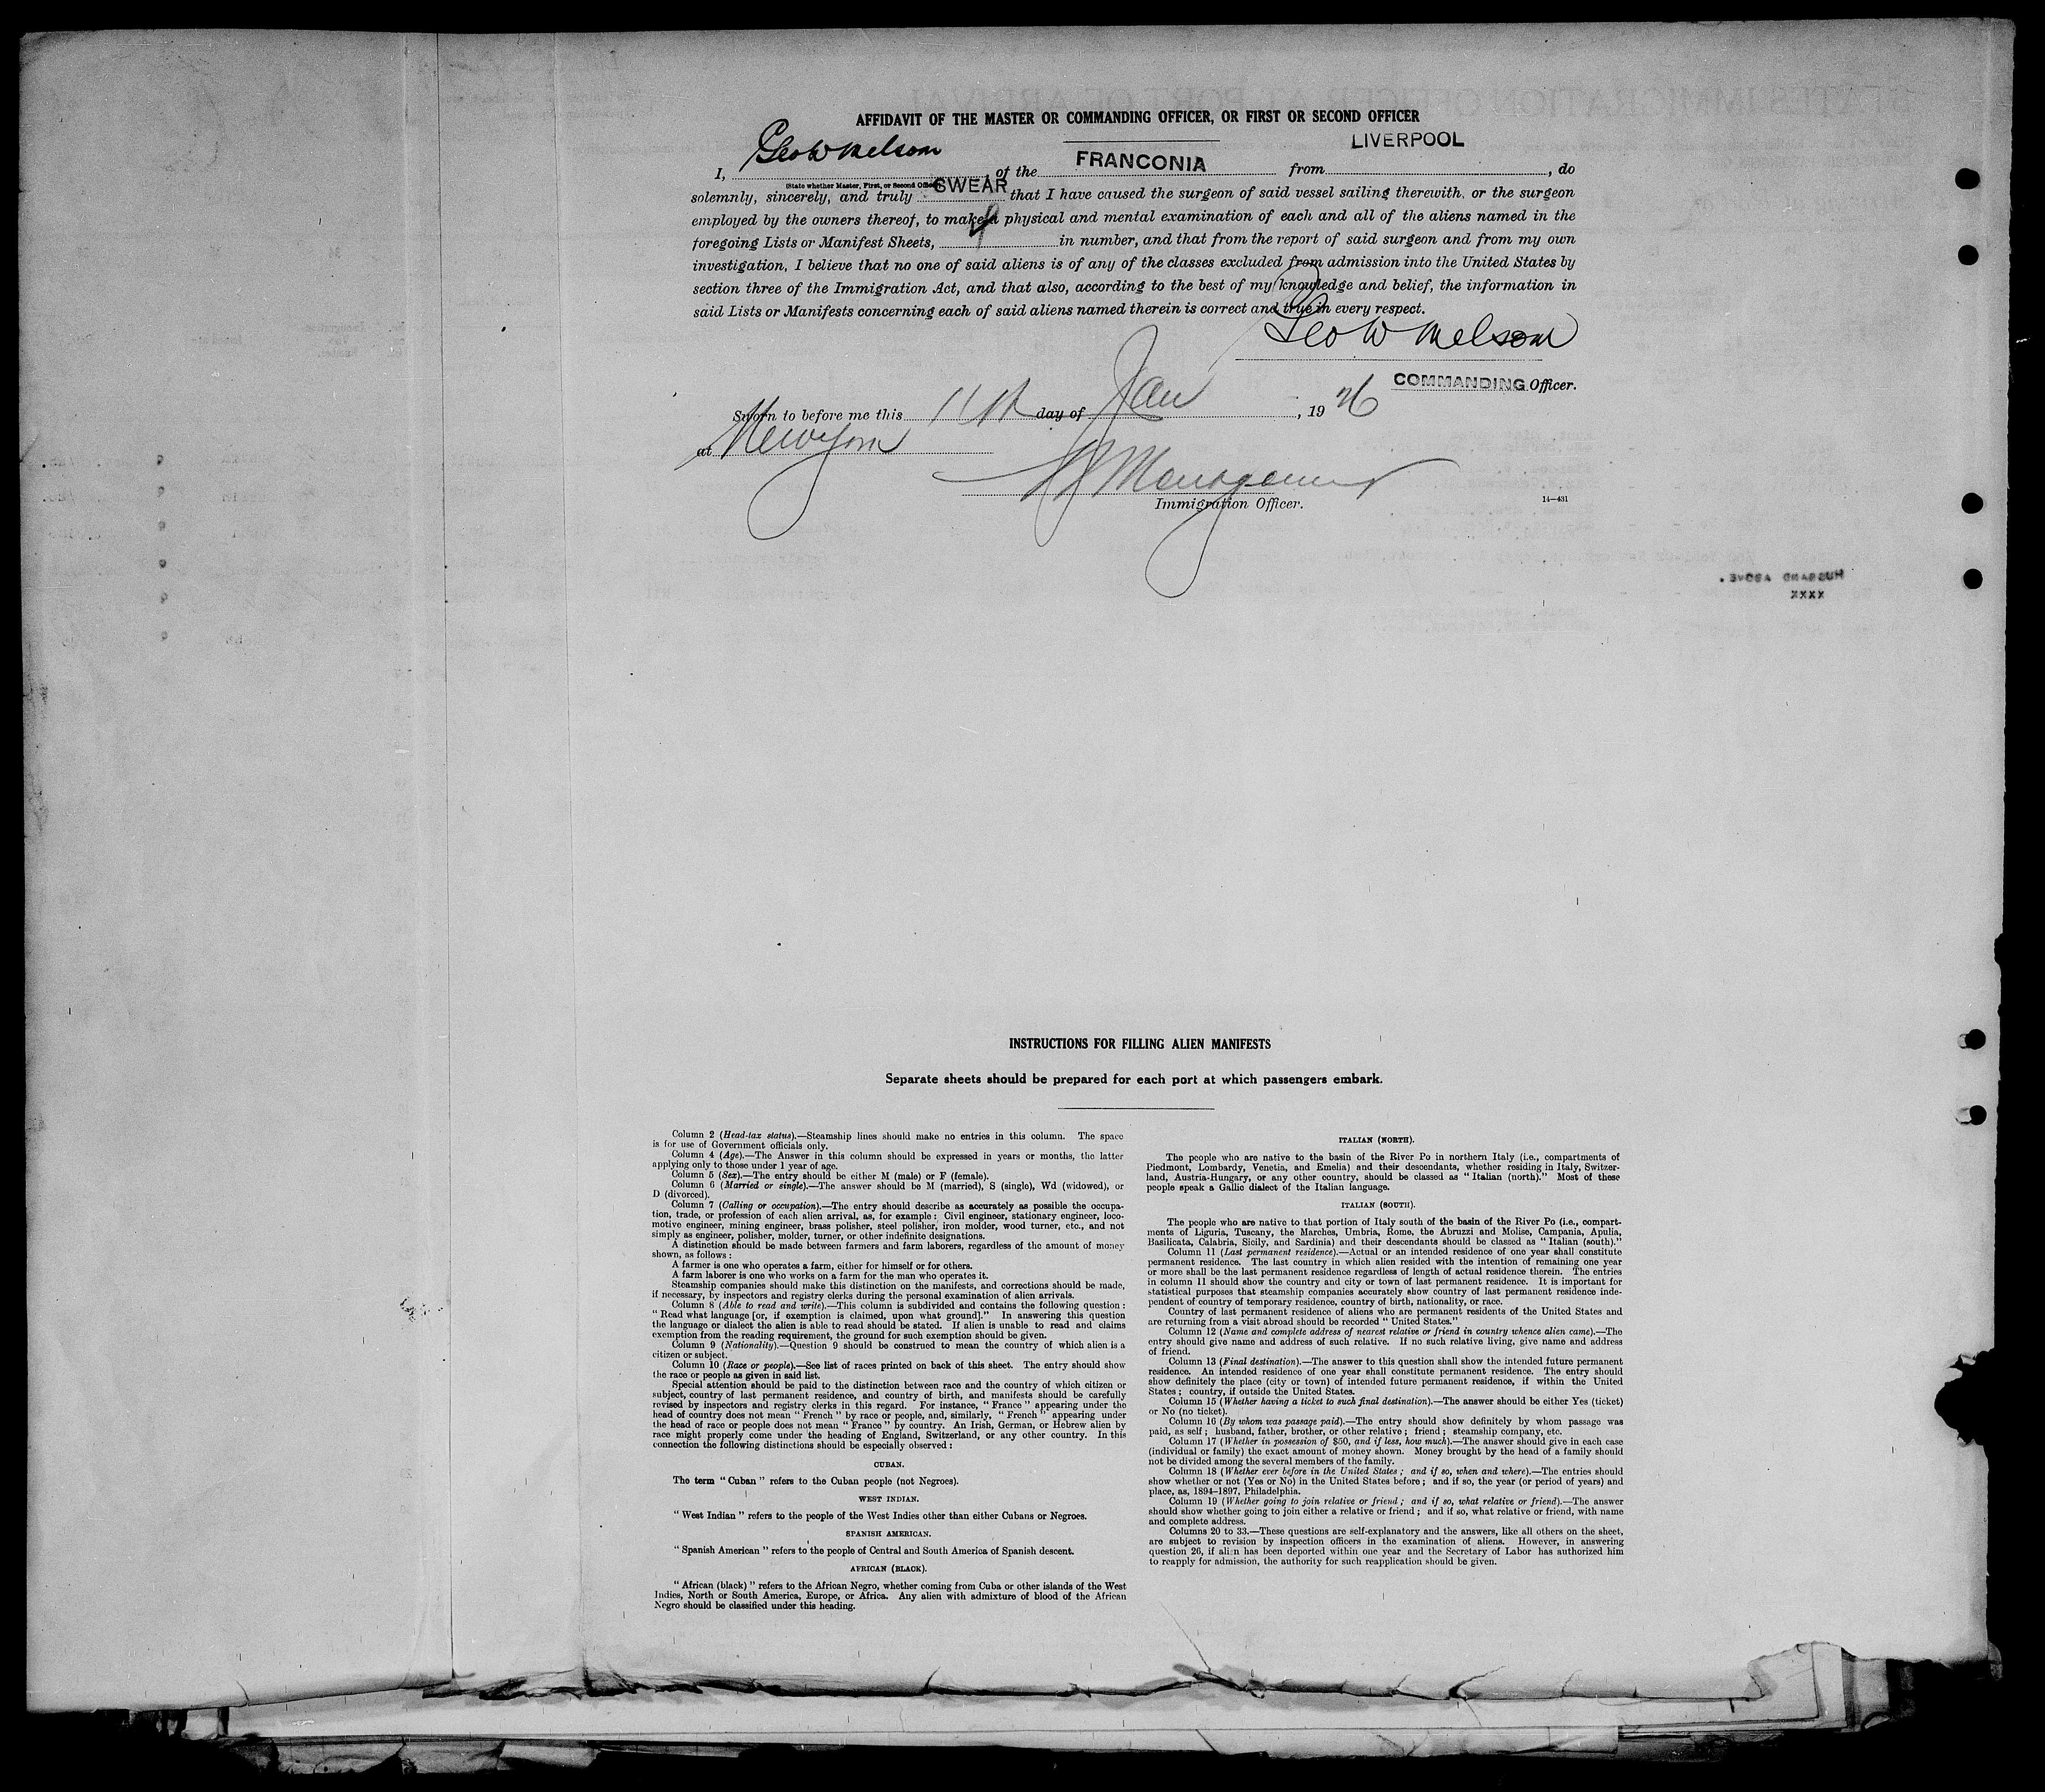 AFFIDAVIT OF THE MASTER OR COMMANDING OFFICER, OR FIRST OR SECOND OFFICER
I, Geo W Melsom of the FRANCONIA from LIVERPOOL, do
(State whether Master, First, or Second Officer)
solemnly, sincerely, and truly SWEAR that I have caused the surgeon of said vessel sailing therewith, or the surgeon
employed by the owners thereof, to make a physical and mental examination of each and all of the aliens named in the
foregoing Lists or Manifest Sheets, 9 in number, and that from the report of said surgeon and from my own
investigation, I believe that no one of said aliens is of any of the classes excluded from admission into the United States by
section three of the Immigration Act, and that also, according to the best of my knowledge and belief, the information in
said Lists or Manifests concerning each of said aliens named therein is correct and true in every respect.
Geo W Melsom
COMMANDING Officer.
Sworn to before me this 11th day of Jan, 1926
at New York
Immigration Officer.
14—431
HUSBAND ABOVE.
XXXX
INSTRUCTIONS FOR FILLING ALIEN MANIFESTS
Separate sheets should be prepared for each port at which passengers embark.
Column 2 (Head-tax status).—Steamship lines should make no entries in this column. The space
is for use of Government officials only.
Column 4 (Age).—The Answer in this column should be expressed in years or months, the latter
applying only to those under 1 year of age.
Column 5 (Sex).—The entry should be either M (male) or F (female).
Column 6 (Married or single).—The answer should be M (married), S (single), Wd (widowed), or
D (divorced).
Column 7 (Calling or occupation).—The entry should describe as accurately as possible the occupa-
tion, trade, or profession of each alien arrival, as, for example: Civil engineer, stationary engineer, loco-
motive engineer, mining engineer, brass polisher, steel polisher, iron molder, wood turner, etc., and not
simply as engineer, polisher, molder, turner, or other indefinite designations.
A distinction should be made between farmers and farm laborers, regardless of the amount of money
shown, as follows:
A farmer is one who operates a farm, either for himself or for others.
A farm laborer is one who works on a farm for the man who operates it.
Steamship companies should make this distinction on the manifests, and corrections should be made,
if necessary, by inspectors and registry clerks during the personal examination of alien arrivals.
Column 8 (Able to read and write).—This column is subdivided and contains the following question:
"Read what language [or, if exemption is claimed, upon what ground]." In answering this question
the language or dialect the alien is able to read should be stated. If alien is unable to read and claims
exemption from the reading requirement, the ground for such exemption should be given.
Column 9 (Nationality).—Question 9 should be construed to mean the country of which alien is a
citizen or subject.
Column 10 (Race or people).—See list of races printed on back of this sheet. The entry should show
the race or people as given in said list.
Special attention should be paid to the distinction between race and the country of which citizen or
subject, country of last permanent residence, and country of birth, and manifests should be carefully
revised by inspectors and registry clerks in this regard. For instance, "France" appearing under the
head of country does not mean "French" by race or people, and, similarly, "French" appearing under
the head of race or people does not mean "France" by country. An Irish, German, or Hebrew alien by
race might properly come under the heading of England, Switzerland, or any other country. In this
connection the following distinctions should be especially observed:
CUBAN.
The term "Cuban" refers to the Cuban people (not Negroes).
WEST INDIAN.
"West Indian" refers to the people of the West Indies other than either Cubans or Negroes.
SPANISH AMERICAN.
"Spanish American" refers to the people of Central and South America of Spanish descent.
AFRICAN (BLACK).
"African (black)" refers to the African Negro, whether coming from Cuba or other islands of the West
Indies, North or South America, Europe, or Africa. Any alien with admixture of blood of the African
Negro should be classified under this heading.
ITALIAN (NORTH).
The people who are native to the basin of the River Po in northern Italy (i.e., compartments of
Piedmont, Lombardy, Venetia, and Emelia) and their descendants, whether residing in Italy, Switzer-
land, Austria-Hungary, or any other country, should be classed as "Italian (north)." Most of these
people speak a Gallic dialect of the Italian language.
ITALIAN (SOUTH).
The people who are native to that portion of Italy south of the basin of the River Po (i.e., compart-
ments of Liguria, Tuscany, the Marches, Umbria, Rome, the Abruzzi and Molise, Campania, Apulia,
Basilicata, Calabria, Sicily, and Sardinia) and their descendants should be classed as "Italian (south)."
Column 11 (Last permanent residence).—Actual or an intended residence of one year shall constitute
permanent residence. The last country in which alien resided with the intention of remaining one year
or more shall be the last permanent residence regardless of length of actual residence therein. The entries
in column 11 should show the country and city or town of last permanent residence. It is important for
statistical purposes that steamship companies accurately show country of last permanent residence inde-
pendent of country of temporary residence, country of birth, nationality, or race.
Country of last permanent residence of aliens who are permanent residents of the United States and
are returning from a visit abroad should be recorded "United States."
Column 12 (Name and complete address of nearest relative or friend in country whence alien came).—The
entry should give name and address of such relative. If no such relative living, give name and address
of friend.
Column 13 (Final destination).—The answer to this question shall show the intended future permanent
residence. An intended residence of one year shall constitute permanent residence. The entry should
show definitely the place (city or town) of intended future permanent residence, if within the United
States; country, if outside the United States.
Column 15 (Whether having a ticket to such final destination).—The answer should be either Yes (ticket)
or No (no ticket).
Column 16 (By whom was passage paid).—The entry should show definitely by whom passage was
paid, as self; husband, father, brother, or other relative; friend; steamship company, etc.
Column 17 (Whether in possession of $50, and if less, how much).—The answer should give in each case
(individual or family) the exact amount of money shown. Money brought by the head of a family should
not be divided among the several members of the family.
Column 18 (Whether ever before in the United States; and if so, when and where).—The entries should
show whether or not (Yes or No) in the United States before; and if so, the year (or period of years) and
place, as, 1894–1897, Philadelphia.
Column 19 (Whether going to join relative or friend; and if so, what relative or friend).—The answer
should show whether going to join either a relative or friend; and if so, what relative or friend, with name
and complete address.
Columns 20 to 33.—These questions are self-explanatory and the answers, like all others on the sheet,
are subject to revision by inspection officers in the examination of aliens. However, in answering
question 26, if alien has been deported within one year and the Secretary of Labor has authorized him
to reapply for admission, the authority for such reapplication should be given.